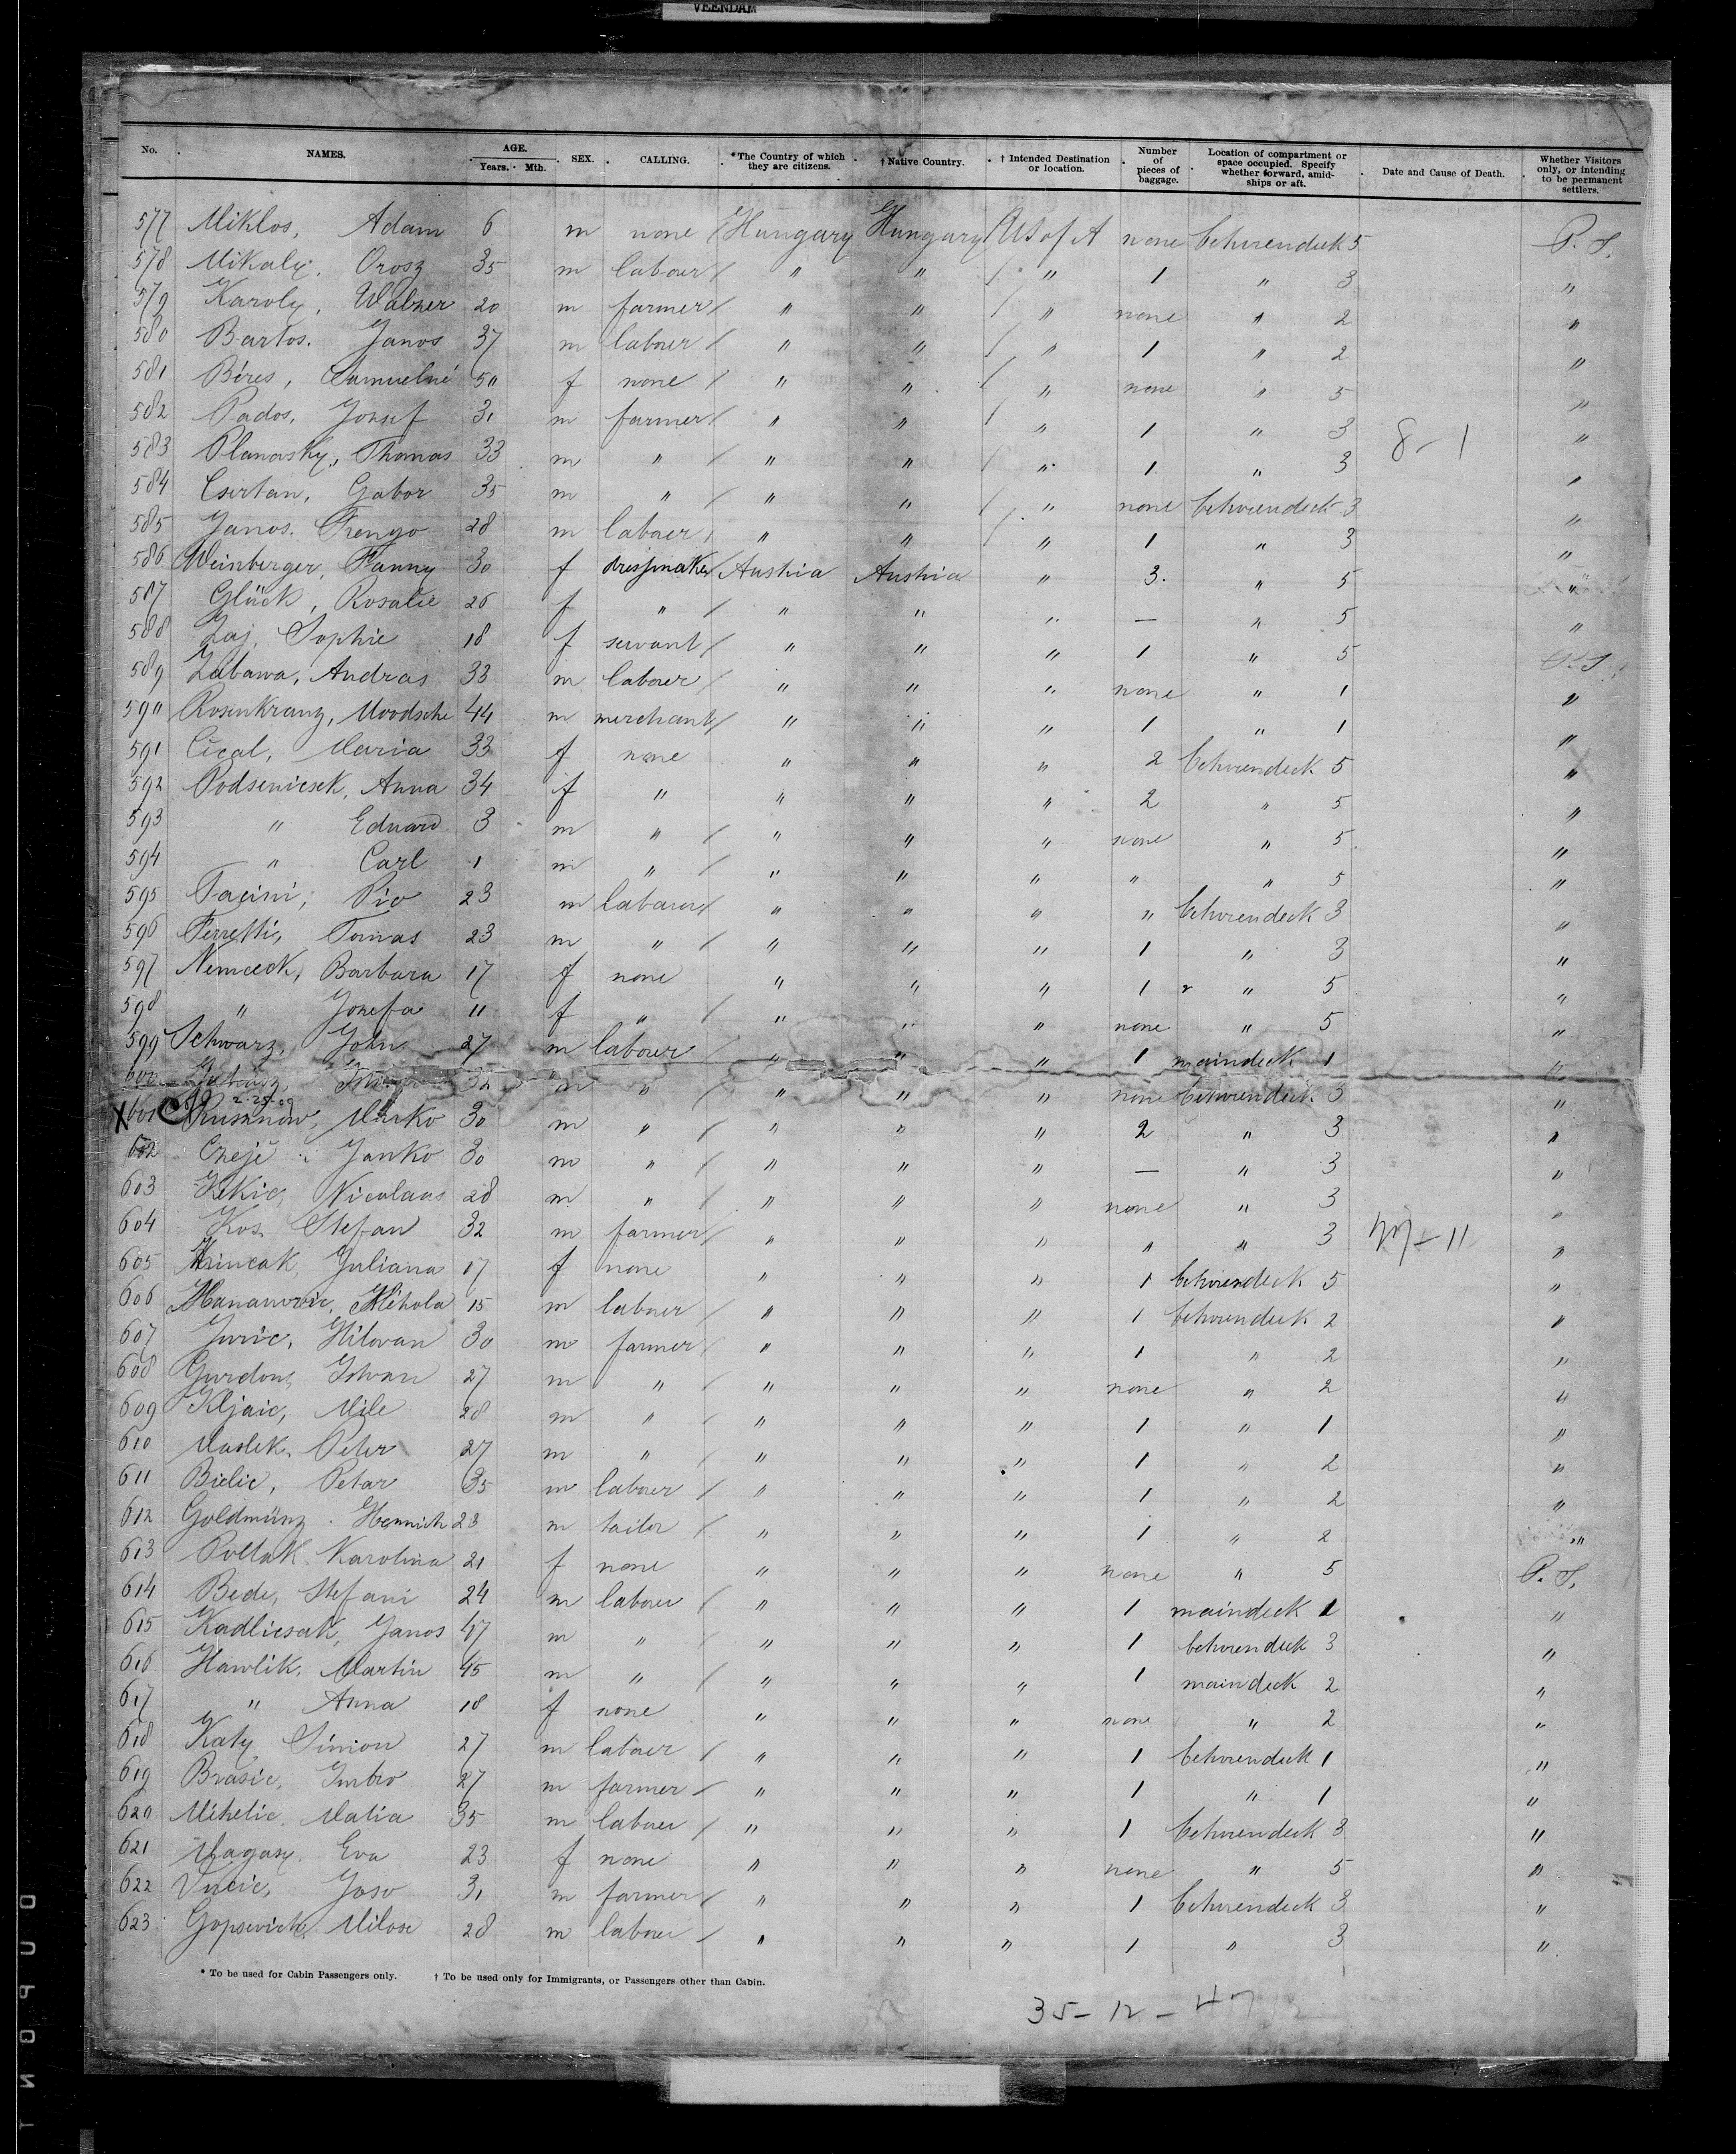 VEENDAM
No. NAMES. AGE. Years. Mth. SEX. CALLING. *The Country of which they are citizens. † Native Country. † Intended Destination or location. Number of pieces of baggage. Location of compartment or space occupied. Specify whether forward, amidships or aft. Date and Cause of Death. Whether Visitors only, or intending to be permanent settlers.
577 Miklos, Adam 6 m none Hungary Hungary US of A none betweendeck 5 P. S.
578 Mikaly, Orosz 35 m labouer " " " 1 " 3 "
579 Karoly, 20 m farmer " " " none " 2 "
580 Bartos. Janos 37 m labouer " " " 1 " 2 "
581 Béres, Samuelné 50 f none " " " none " 5 "
582 Pados, Jozsef 31 m farmer " " " 1 " 3 "
8-1
583 Planasky, Thomas 33 m " " " " 1 " 3 "
584 Csertan, Gabor 35 m " " " " none betweendeck 3 "
585 Janos. Frengo 28 m labouer " " " 1 " 3 "
586 Weinberger, Fanny 30 f dressmaker Austria Austria " 3. " 5 "
587 Glück, Rosalie 26 f " " " " — " 5 "
588 Zaj, Sophie 18 f servant " " " 1 " 5 P. S.
589 Zabawa, Andras 33 m labouer " " " none " 1 "
590 Rosenkranz, Moodsche 44 m merchant " " " 1 " 1 "
591 Cical, Maria 33 f none " " " 2 betweendeck 5 "
592 Podsenicsek, Anna 34 f " " " " 2 " 5 "
593 " Eduard 3 m " " " " none " 5 "
594 " Carl 1 m " " " " " " 5 "
595 Pacini, Pio 23 m labouer " " " " betweendeck 3 "
596 Ferretti, Tomas 23 m " " " " 1 " 3 "
597 Nemceck, Barbara 17 f none " " " 1 " 5 "
598 " Josefa 11 f " " " " none " 5 "
599 Schwarz, John 27 m labouer " " " 1 maindeck 1 "
600 32 m " " " " none betweendeck 3 "
2-25-09
X 601 Rusnnow, Marko 30 m " " " " 2 " 3 "
602 Janko 30 m " " " " — " 3 "
603 Nicolaas 28 m " " " " none " 3 "
604 Kos, Stefan 32 m farmer " " " " " 3 "
605 Juliana 17 f none " " " 1 betweendeck 5 "
606 15 m labouer " " " 1 betweendeck 2 "
607 Juric, Milovan 30 m farmer " " " 1 " 2 "
608 Gurdon, Istvan 27 m " " " " none " 2 "
609 Kljaic, Mile 28 m " " " " 1 " 1 "
610 Maslek, Peter 27 m " " " " 1 " 2 "
611 Bielic, Petar 35 m labouer " " " 1 " 2 "
612 Goldmünz. 23 m tailor " " " 1 " 2 "
613 Pollak Karolina 21 f none " " " none " 5 P. S.
614 Bede, Stefani 24 m labouer " " " 1 maindeck 1 "
615 Kadlicsak, Janos 47 m " " " " 1 betweendeck 3 "
616 Hawlik, Martin 45 m " " " " 1 maindeck 2 "
617 " Anna 18 f none " " " none " 2 "
618 Katy Simon 27 m labouer " " " 1 betweendeck 1 "
619 Brasic, Imbro 27 m farmer " " " 1 " 1 "
620 Mihelic, Matia 35 m labouer " " " 1 betweendeck 3 "
621 Magasz, Eva 23 f none " " " none " 5 "
622 Vucic, Joso 31 m farmer " " " 1 betweendeck 3 "
623 Gopsevich, Milose 28 m labouer " " " 1 " 3 "
* To be used for Cabin Passengers only. † To be used only for Immigrants, or Passengers other than Cabin.
35-12-47